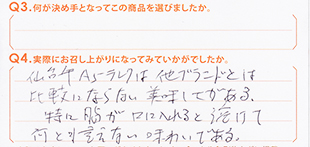 Q3.何が決め手となってこの商品を選びましたか。
Q4.実際にお召し上がりになってみていかがでしたか。
仙台牛A5ランクは他ブランドとは
比較にならない美味しさがある。
特に脂が口に入れると溶けて
何とも言えない味わいである。